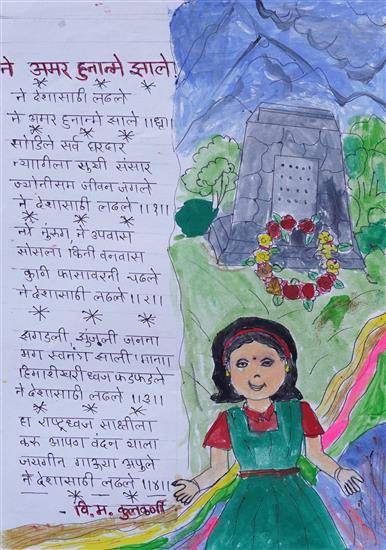 ने अमर हुतात्मे झाले!
ने देशासाठी लढले
ने अमर हुतात्मे झाले ॥धृ॥
सोडिले सर्व घरदार
त्यागीला सुखी संसार
ज्योतीसम जीवन जगले
ने देशासाठी लढले ॥१॥
तो तुरुंग, ते उपवास
सोसला किती वनवास
कुणी फासावरती चढले
ने देशासाठी लढले ॥२॥
झगडली, झुंजली जनता
मग स्वतंत्र झाली माता
हिमाद्रीवरी ध्वज फडफडले
ने देशासाठी लढले ॥३॥
हा राष्ट्रध्वज साक्षीला
करू आपण वंदन याला
जयगीत गाऊया अपुले
ने देशासाठी लढले ॥४॥
- वि. म. कुलकर्णी